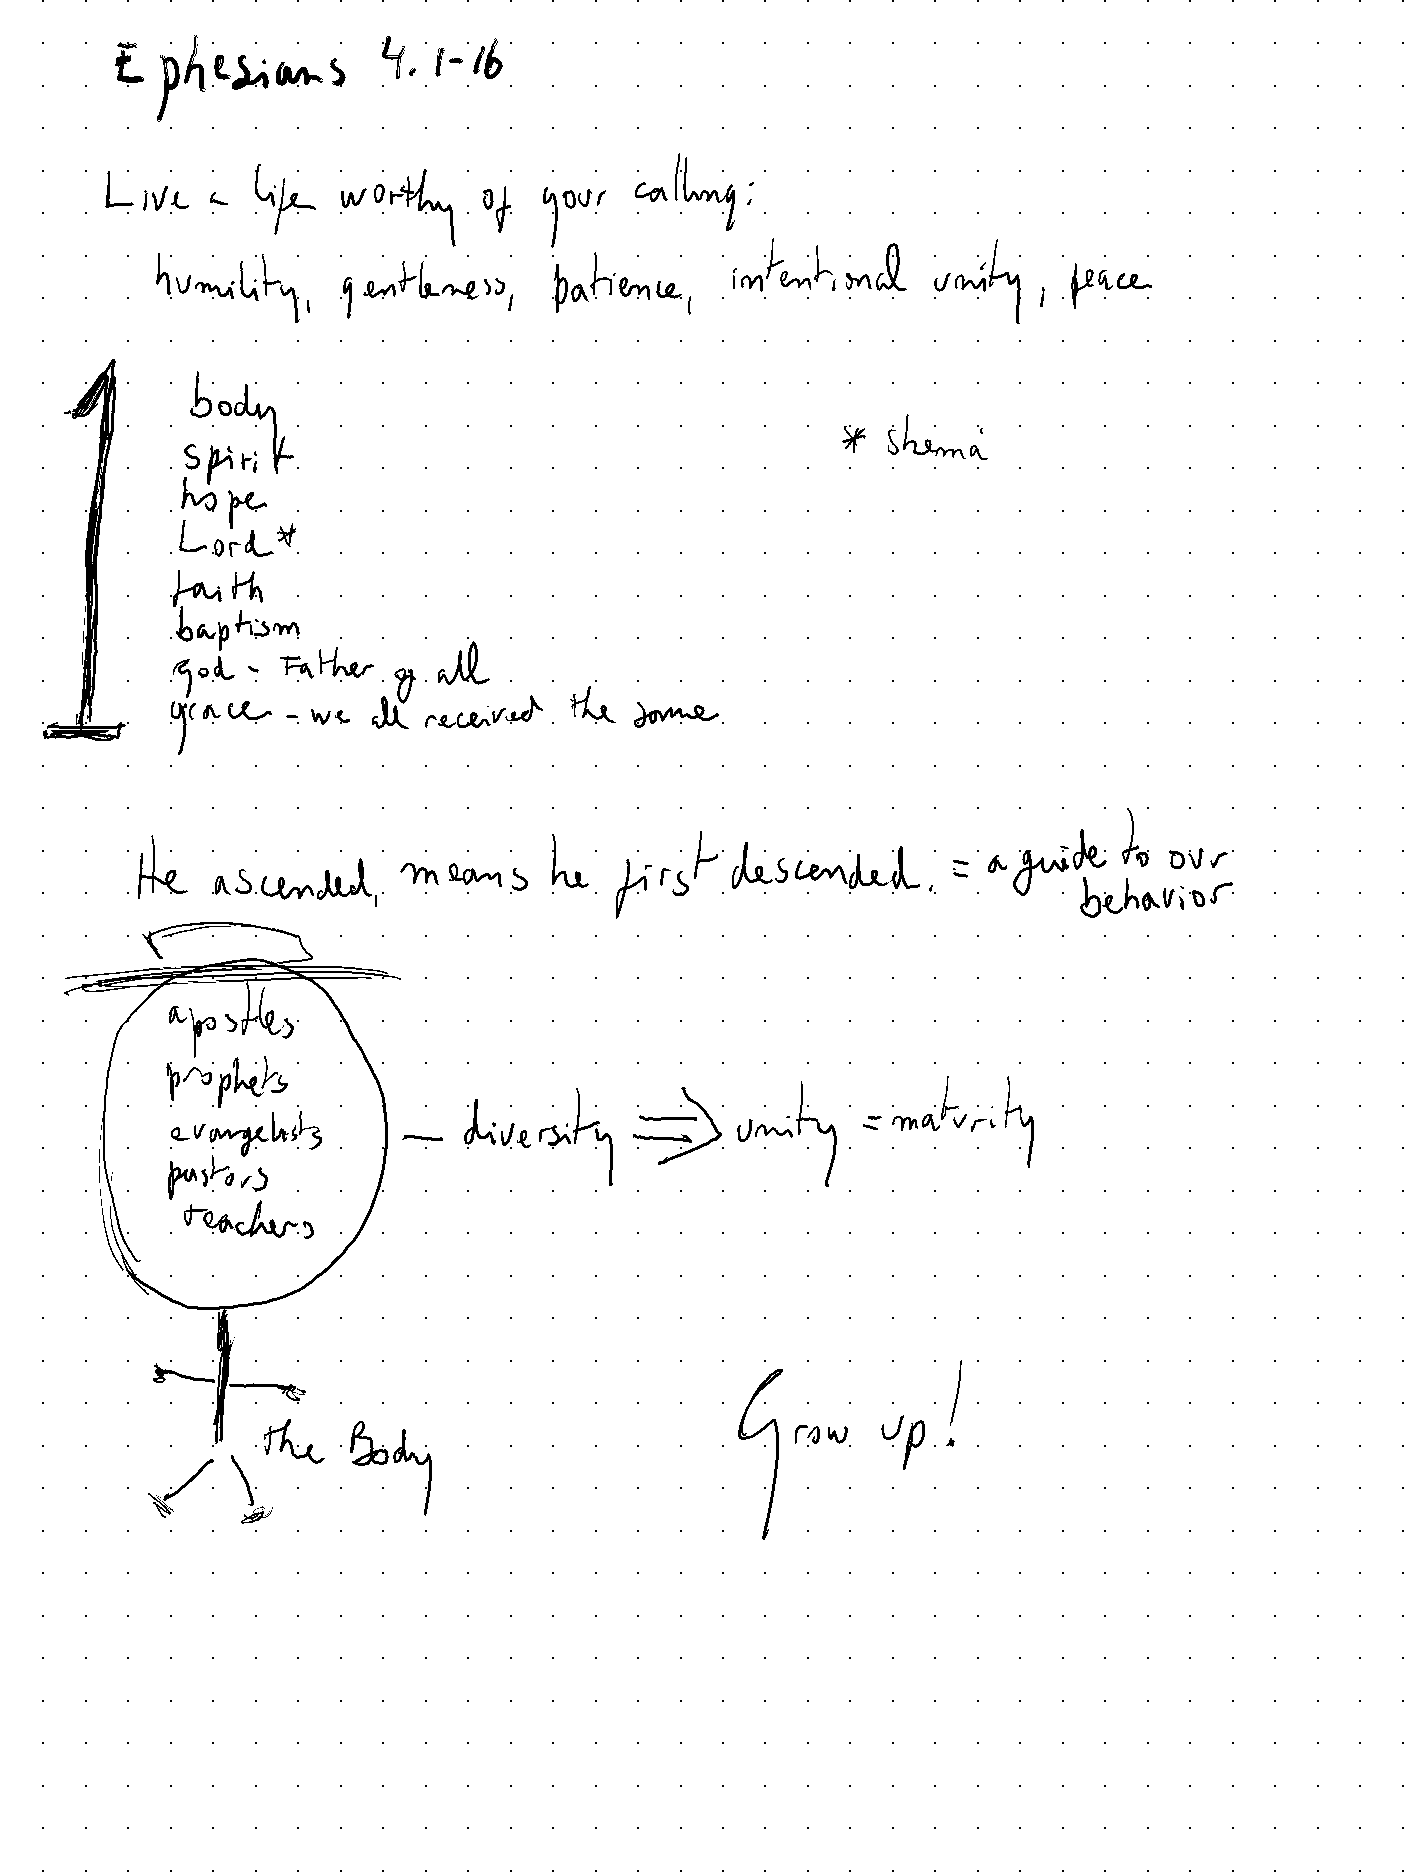 Ephesians 4.1-16
Live a life worthy of your calling:
humility, gentleness, patience, intentional unity, peace
1
body
spirit
hope
Lord*
faith
baptism
god - Father of all
grace - we all received the same
* Shema
He ascended, means he first descended. = a guide to our
behavior
apostles
prophets
evangelists
pastors
teachers
— diversity ⇒ unity = maturity
the Body
Grow up!